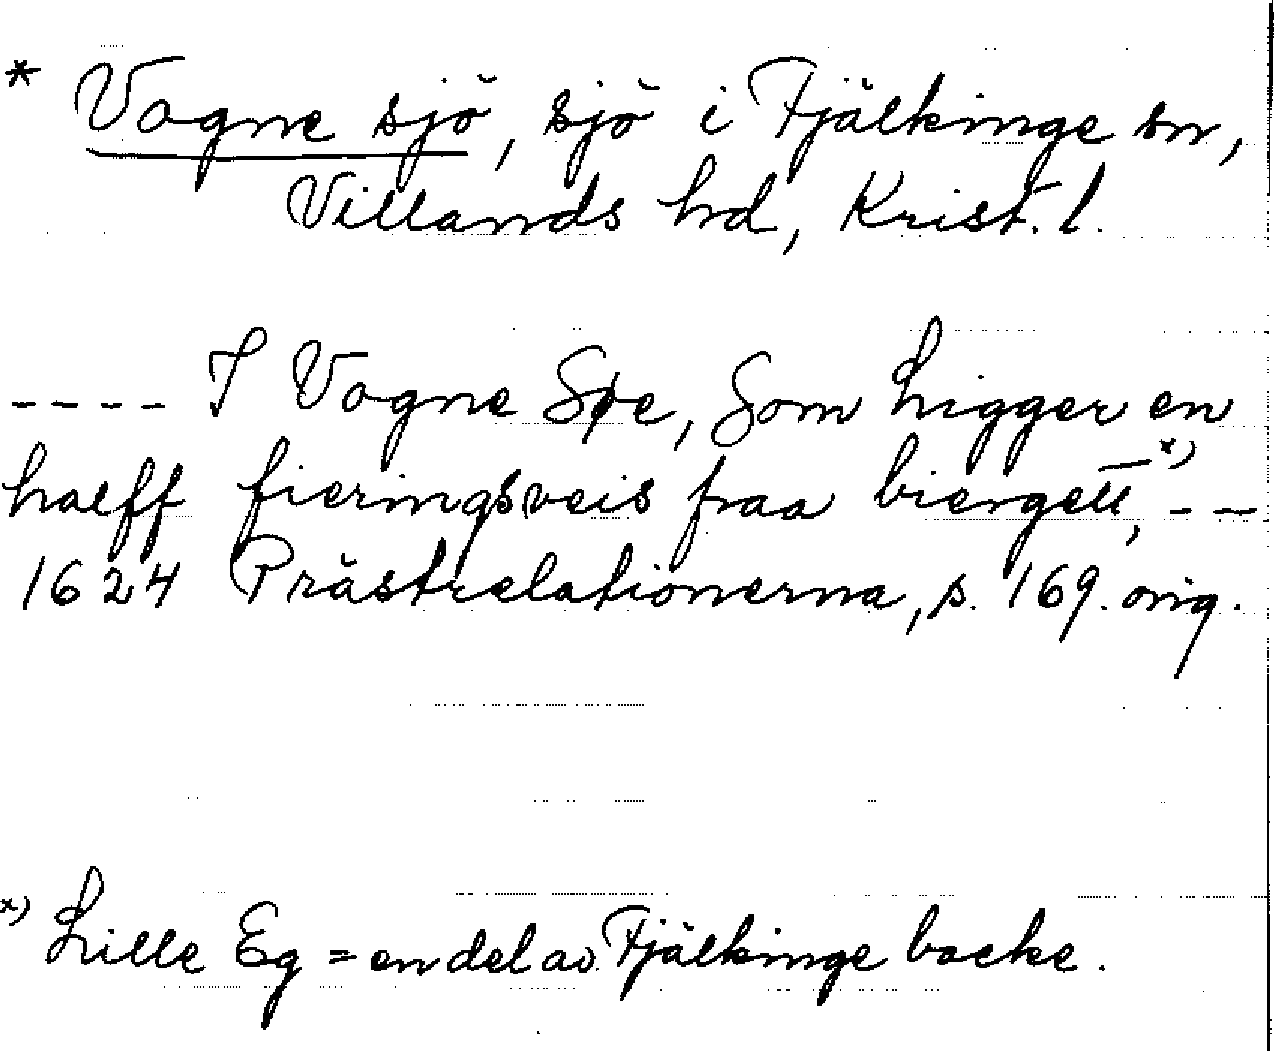 * Vogne sjö, sjö i Fjälkinge sn,
Villands hd, Krist. l.
---- I Vogne Søe, Som Ligger en
halff fieringsveis fraa biergett x), --
1624 Prästrelationerna, s. 169. orig.
x) Lille Eg = en del av Fjälkinge backe.